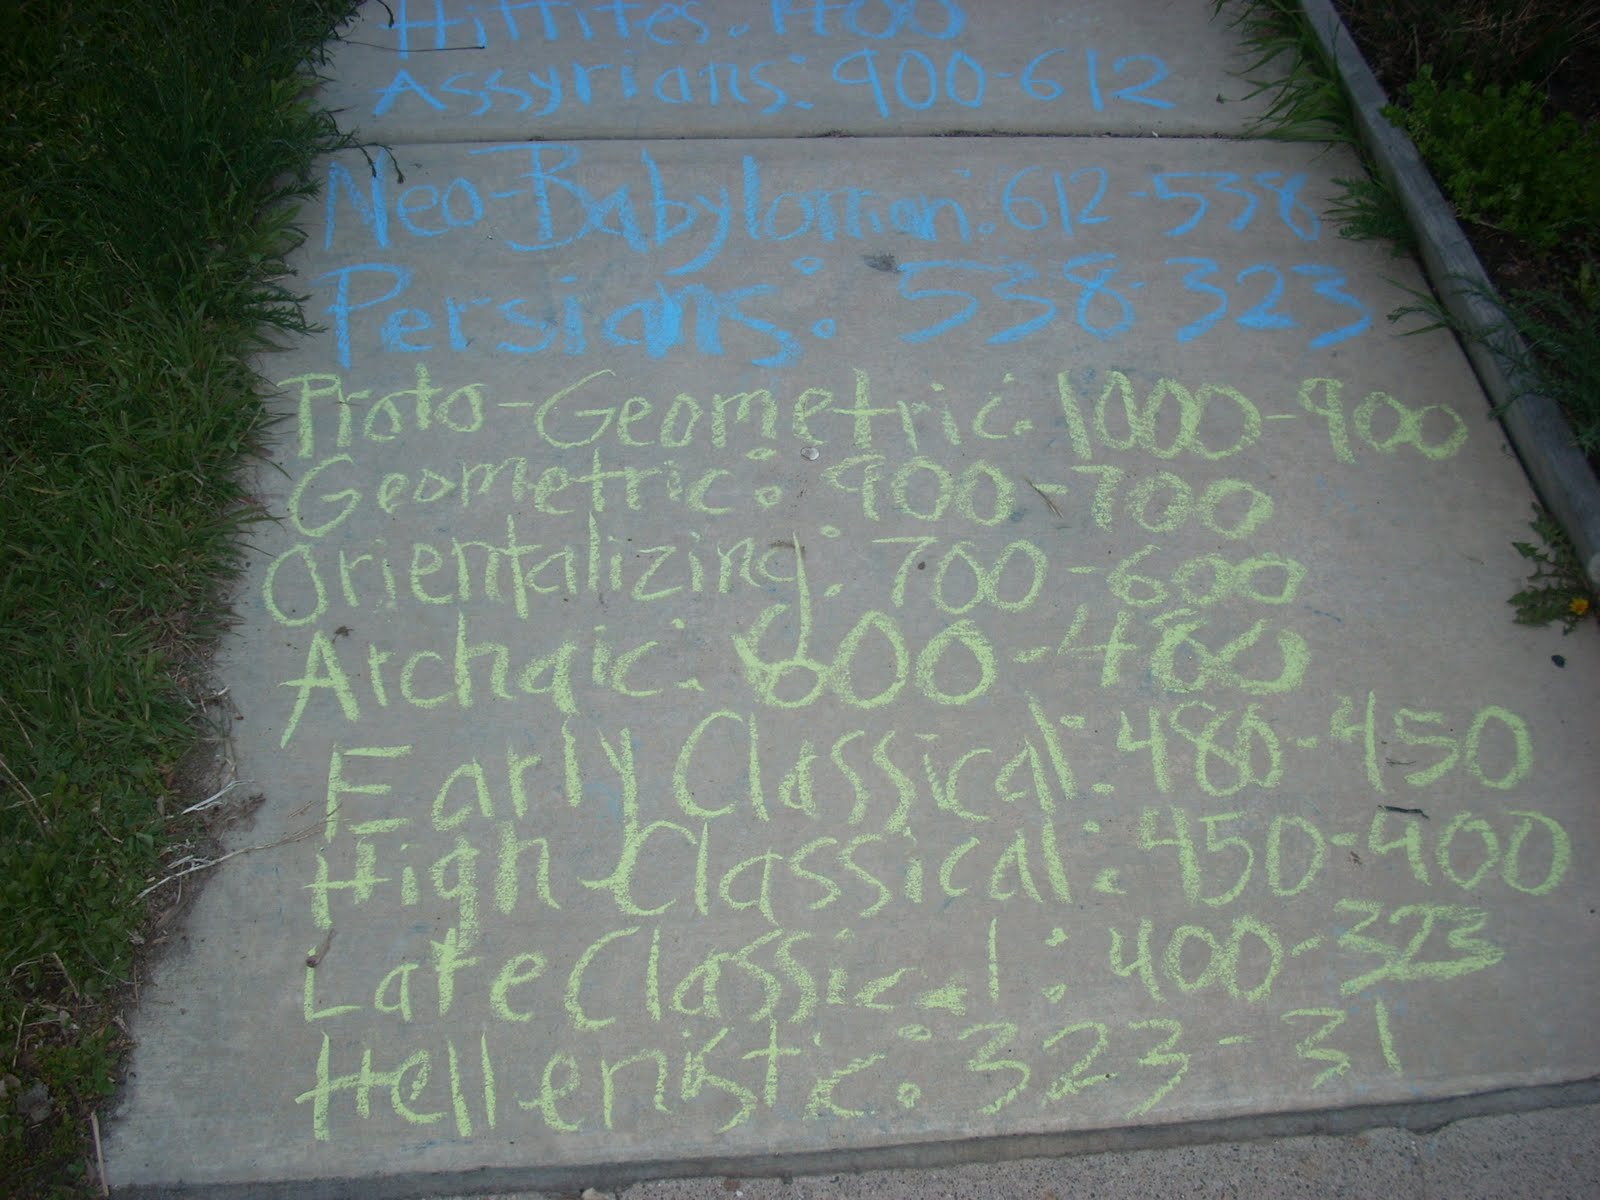 Hittites: 1400
Assyrians: 900-612
Neo-Babylonian: 612-538
Persians: 538-323
Proto-Geometric: 1000-900
Geometric: 900-700
Orientalizing: 700-600
Archaic: 600-480
Early Classical: 480-450
High Classical: 450-400
Late Classical: 400-323
Hellenistic: 323-31